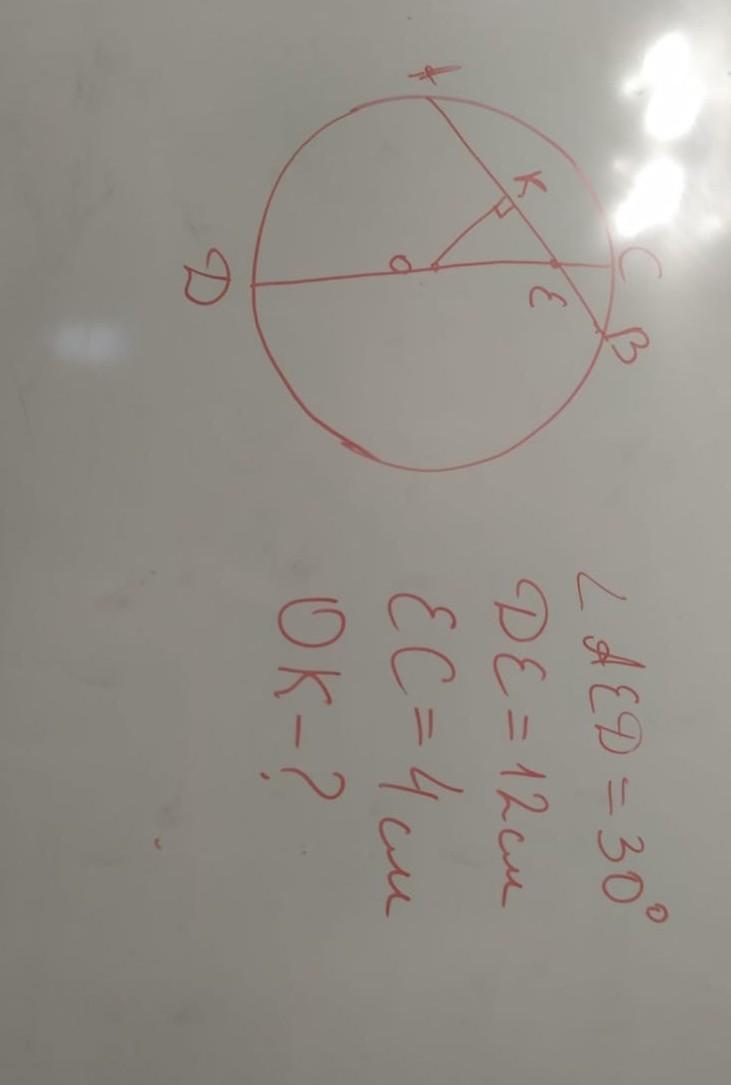 A
K
C
O
E
B
D
∠AED = 30°
DE = 12 см
EC = 4 см
OK - ?